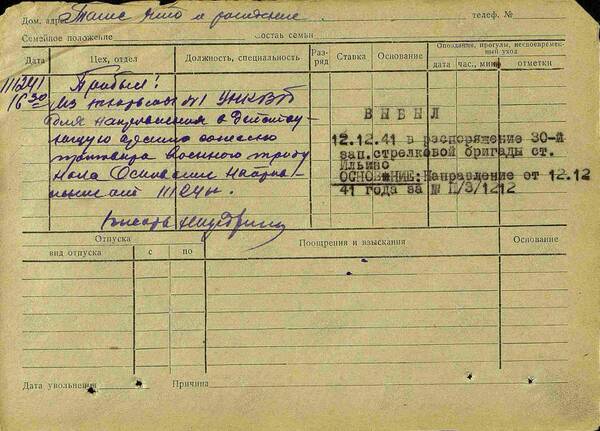 Дом. адрес Тоже что и рождение телеф. №
Семейное положение Состав семьи
Дата Цех, отдел Должность, специальность Раз-ряд Ставка Основание Опоздание, прогулы, несвоевременный уход
дата час., мин. отметки
11/12 41
16 30
Прибыл!
Из тюрьмы №1 УНКВД
для направления в Действу-
ющую армию согласно
приговора Военного трибу
нала Основание направ-
ление от 11/12 41г.
Писарь
ВЫБЫЛ
12.12.41 в распоряжение 30-й
зап.стрелковой бригады ст.
Ильино
ОСНОВАНИЕ:Направление от 12.12
41 года за № П/3/1212
Отпуска Поощрения и взыскания Основание
вид отпуска с по
Дата увольнения Причина